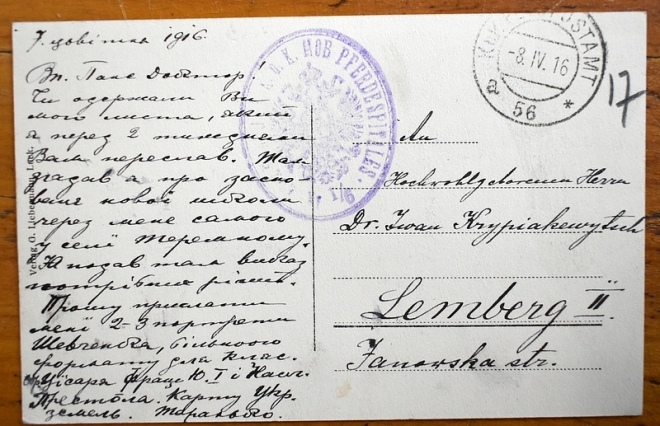 7. цвітня 1916.
Вп. Пане Докторе!
Чи одержали Ви
мого листа, який
я перед 2 тижнями
Вам переслав. Там
згадав я про засно-
ванє нової школи
через мене самого
у селі Теремному.
Я подав там виказ
потрібних річий.
Прошу прислати
мені 2-3 портрети
Шевченка, більшого
формату для клас.
Цїсаря Франц Ю. I і Насл.
Престола. Карту Укр.
земель.
Verlag G. Liebermann, Luck.
K.U.K. MOB PFERDESPITALES
1/6
K.U.K. POSTAMT
-8.IV.16
a 56 *
17
An
Hochwohlgeborenen Herrn
Dr. Iwan Krypiakewytsch
Lemberg II.
Janowska str.